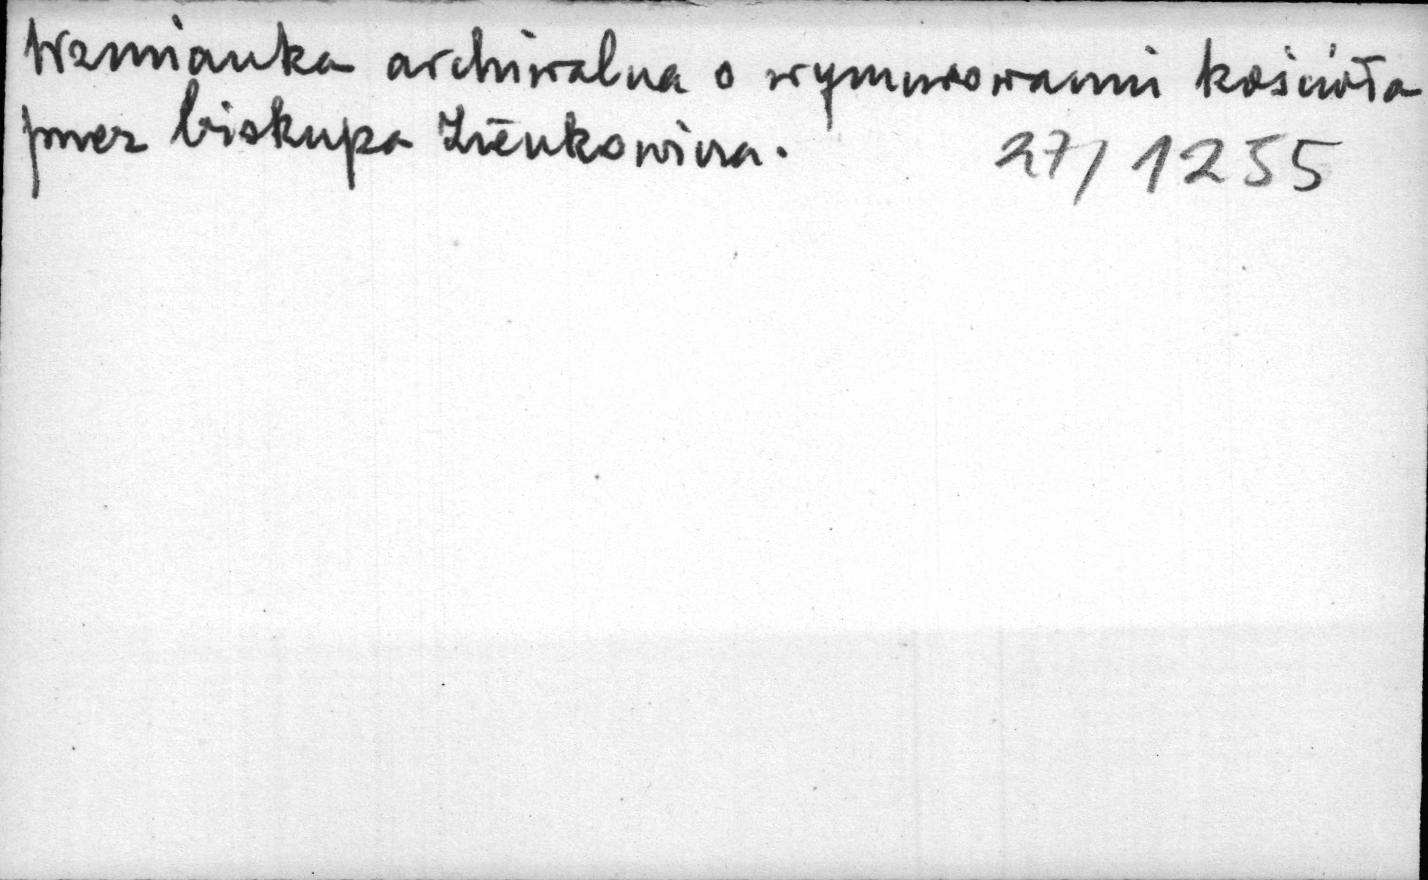 Wzmianka archiwalna o wymurowaniu kościoła
przez biskupa Zienkowicza. 27/1255